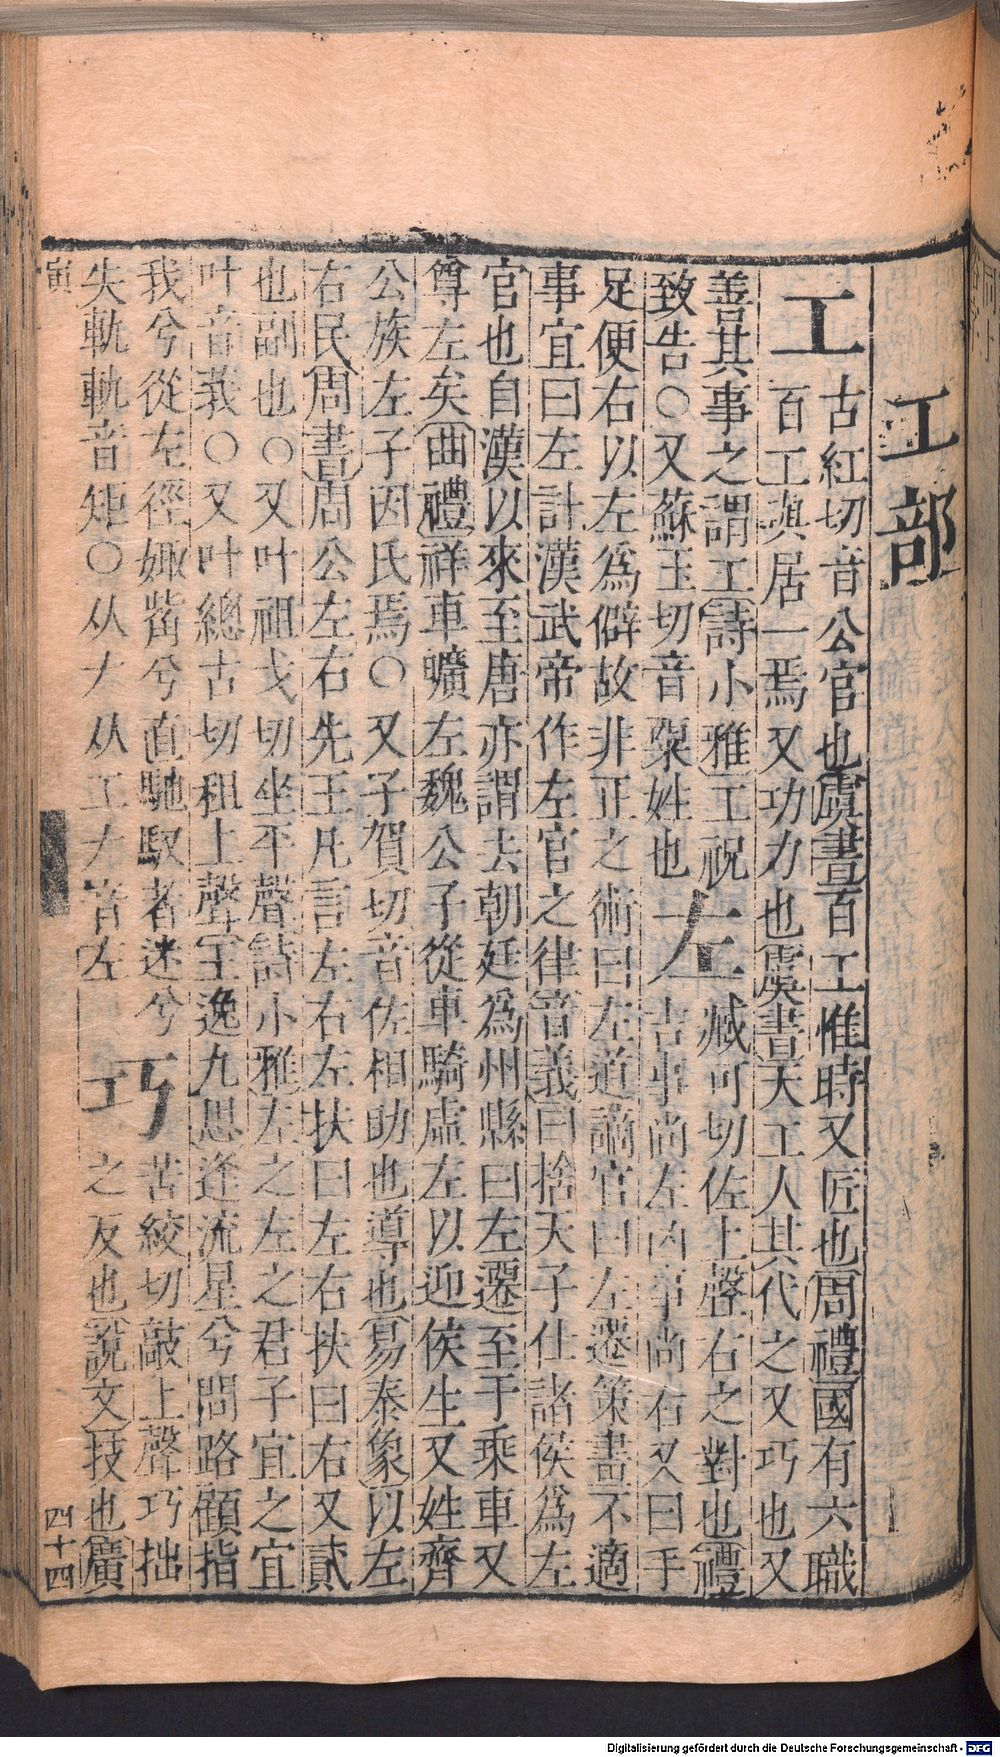 工部
工 古紅切音公官也虞書百工惟時又匠也周禮國有六職
百工與居一焉又功力也虞書天工人其代之又巧也又
善其事之謂工詩小雅工祝
致告○又蘇玉切音粟姓也
左 臧可切佐上聲右之對也禮
吉事尚左凶事尚右又曰手
足便右以左爲僻故非正之術曰左道謫官曰左遷策畫不適
事宜曰左計漢武帝作左官之律音義曰捨天子仕諸侯爲左
官也自漢以來至唐亦謂去朝廷爲州縣曰左遷至于乘車又
尊左矣曲禮祥車曠左魏公子從車騎虛左以迎侯生又姓齊
公族左子因氏焉○又子賀切音佐相助也導也易泰象以左
右民周書周公左右先王凡言左右左扶曰左右扶曰右又貳
也副也○又叶祖戈切坐平聲詩小雅左之左之君子宜之宜
叶音莪○又叶總古切租上聲王逸九思逢流星兮問路顧指
我兮從左徑娵觜兮直馳馭者迷兮
失軌軌音矩○从𠂇从工𠂇音左
巧 苦絞切敲上聲巧拙
之反也說文技也廣
寅
四十四
Digitalisierung gefördert durch die Deutsche Forschungsgemeinschaft - DFG